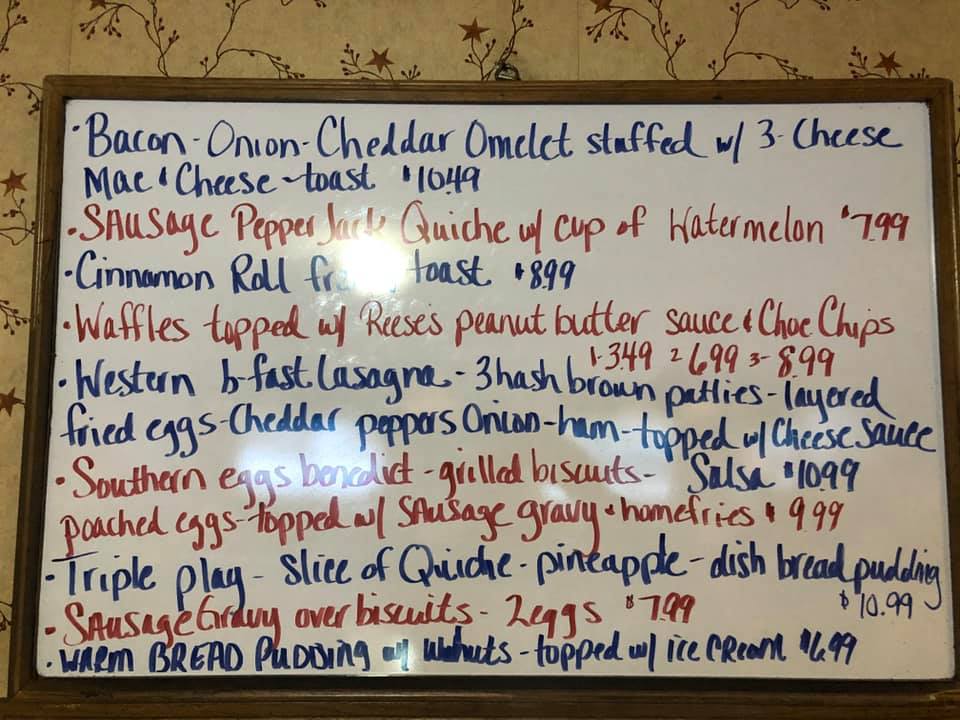 • Bacon-Onion-Cheddar Omelet stuffed w/ 3-Cheese
Mac & Cheese-toast $10.49
• SAUSage Pepper Jack Quiche w/ cup of Watermelon $7.99
• Cinnamon Roll french toast $8.99
• Waffles topped w/ Reese's peanut butter sauce & Choc Chips
1-3.49 2-6.99 3-8.99
• Western b-fast lasagna - 3 hash brown patties - layered
fried eggs-Cheddar peppers Onion-ham-topped w/ Cheese sauce
Salsa $10.99
• Southern eggs benedict - grilled biscuits-
poached eggs-topped w/ SAUSage gravy & homefries $9.99
• Triple play - Slice of Quiche - pineapple - dish bread pudding
$10.99
• SAUSage Gravy over biscuits - 2 eggs $7.99
• WARM BREAD PUDDING w/ Walnuts - topped w/ ice CREAM $6.99